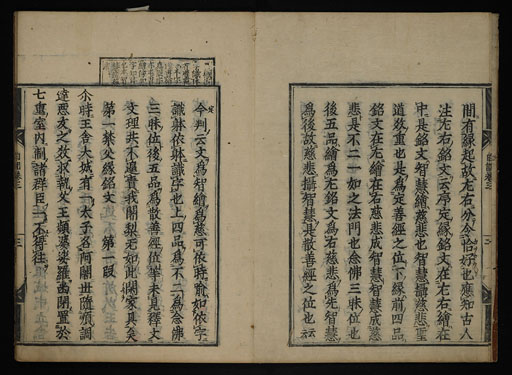 間有緣起故左右分令恰好也應知古人
注左右銘文云序定緣銘文在左右繪在
中是銘文智慧繪慈悲也智慧攝慈悲聖
道效重也是爲定善經之位下緣前四品
銘文在左繪在右慈悲成智慧智慧成慈
悲是不二一如之法門也念佛三昧也
後五品爲先銘文爲右慈悲爲先智慧
爲後故慈悲攝智慧是散善經之位也云云
今判云文爲智繪爲慈可依時前如依字
識躰依躰識字也上四品爲不二爲念佛
三昧位後五品爲散善經位華未見釋文
文理共不違實我闍梨无如此闕家具矣
第一禁父緣銘文 第一段
介時王舍大城有一太子名阿闍世隨順調
達惡友之教收執父王頻婆娑羅幽閉置於
七重室内制諸群臣一不得往